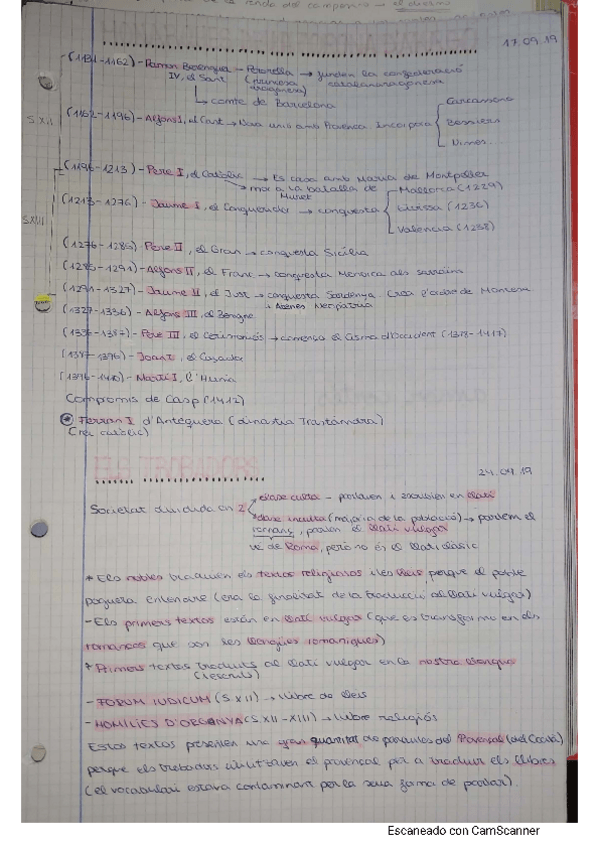 17.09.19
(1131-1162) - Ramon Berenguer IV, el Sant - Peronella (princesa aragonesa) → funden la confederació catalanoaragonesa
↳ comte de Barcelona
S.XII
(1162-1196) - Alfons I, el Cast → Nova unió amb Provença. Incorpora Carcassona
Besiers
Nimes...
(1196-1213) - Pere I, el Catòlic → Es casa amb Maria de Montpeller
→ mor a la batalla de Muret
S.XIII
(1213-1276) - Jaume I, el Conqueridor → conquesta Mallorca (1229)
Eivissa (1236)
Valencia (1238)
(1276-1285) Pere II, el Gran → conquesta Sicília
(1285-1291) - Alfons II, el Franc → conquesta Menorca als sarraïns
(1291-1327) - Jaume II, el Just → conquesta Sardenya. Crea l'ordre de Montesa
+ Atenes Neopatria
(1327-1336) - Alfons III, el Benigne
(1336-1387) - Pere III, el Cerimoniós → comença el Cisma d'Occident (1378-1417)
(1387-1396) - Joan I, el Caçador
(1396-1410) - Martí I, l'Humà
Compromis de Casp (1412)
Ferran I d'Antequera (dinastia Trastàmara)
(rei catòlic)
24.09.19
Societat dividida en 2 classe culta - parlaven i escrivien en llatí
classe inculta (majoria de la població) → parlaven el romanç, parlen el llatí vulgar
ve de Roma, però no és el llatí clàssic
* Els nobles traduïen els textos religiosos i les lleis, perque el poble
poguera entendre (era la finalitat de la traducció al llatí vulgar)
- Els primers textos estàn en llatí vulgar (que es transformo en els
romanços que son les llengües romaniques)
* Primers textos traduits al llatí vulgar en la nostra llengua
(escrits)
- FORUM IUDICUM (S.XII) → llibre de lleis
- HOMILIES D'ORGANYÀ (S XII-XIII) → llibre religiós
Estos textos presenten una gran quantitat de paraules del Provençal (del Occità)
perque els trobadors utilitzaven el provençal per a traduir els llibres
(el vocabulari estava contaminat per la seua forma de parlar).
Escaneado con CamScanner